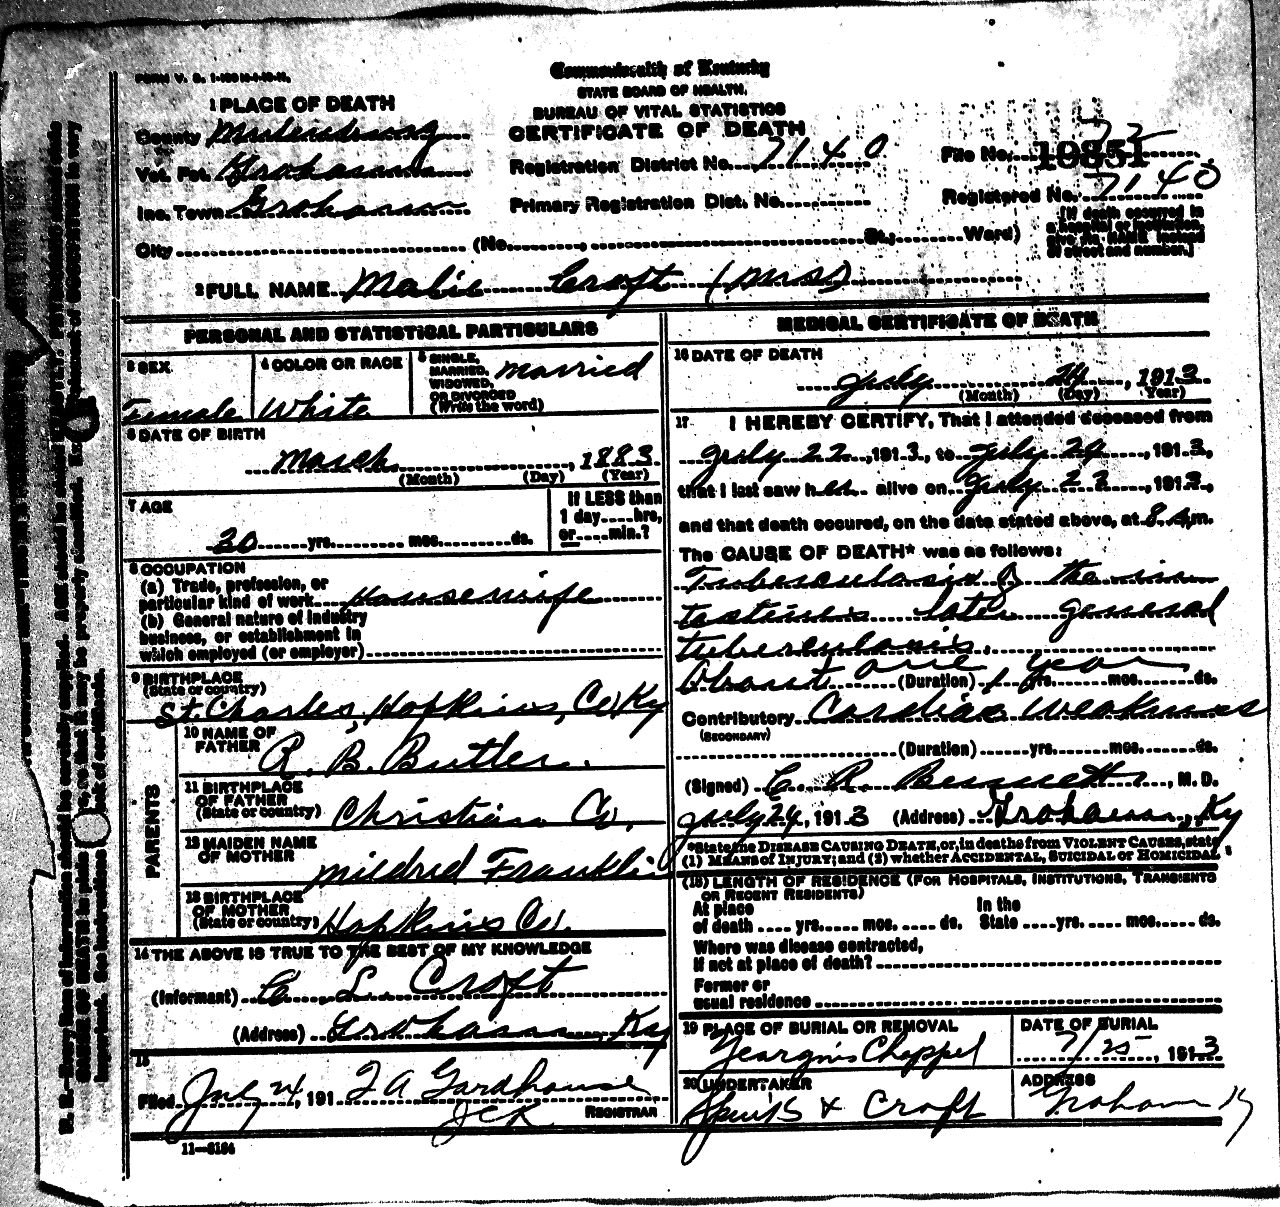 FORM V. S.
Commonwealth of Kentucky
STATE BOARD OF HEALTH.
BUREAU OF VITAL STATISTICS
CERTIFICATE OF DEATH
1 PLACE OF DEATH
County
Vot. Pct. Graham
Inc. Town Graham
City (No. , St.; Ward)
Registration District No. 7140
Primary Registration Dist. No.
File No. 19851
Registered No. 7140
[If death occurred in
a hospital or institution,
give its NAME instead
of street and number.]
2 FULL NAME Malie Croft (Mrs)
PERSONAL AND STATISTICAL PARTICULARS
3 SEX
Female
4 COLOR OR RACE
White
5 SINGLE,
MARRIED,
WIDOWED,
OR DIVORCED
(Write the word)
Married
6 DATE OF BIRTH
March , 1883
(Month) (Day) (Year)
7 AGE
30 yrs. mos. ds.
If LESS than
1 day hrs,
or min.?
8 OCCUPATION
(a) Trade, profession, or
particular kind of work Housewife
(b) General nature of industry
business, or establishment in
which employed (or employer)
9 BIRTHPLACE
(State or country)
St. Charles, Hopkins, Co, Ky
PARENTS
10 NAME OF
FATHER R. B. Butler.
11 BIRTHPLACE
OF FATHER
(State or country) Christian Co.
12 MAIDEN NAME
OF MOTHER Mildred Franklin
13 BIRTHPLACE
OF MOTHER
(State or country) Hopkins Co.
14 THE ABOVE IS TRUE TO THE BEST OF MY KNOWLEDGE
(Informant) C. L. Croft
(Address) Graham, Ky
15
Filed July 24, 191 J A Gardhouse
JCK REGISTRAR
11-3184
MEDICAL CERTIFICATE OF DEATH
16 DATE OF DEATH
July 24, 1913
(Month) (Day) (Year)
17 I HEREBY CERTIFY, That I attended deceased from
July 22, 1913, to July 24, 1913,
that I last saw her alive on July 23, 1913,
and that death occured, on the date stated above, at 8 a.m.
The CAUSE OF DEATH* was as follows:
Tuberculosis of the in
testines later general
tuberculosis.
About one year
(Duration) 1 yrs. mos. ds.
Contributory Cardiac Weakness
(SECONDARY)
(Duration) yrs. mos. ds.
(Signed) C. R. Bennett, M. D.
July 24, 1913 (Address) Graham, Ky
*State the DISEASE CAUSING DEATH, or, in deaths from VIOLENT CAUSES, state
(1) MEANS of INJURY; and (2) whether ACCIDENTAL, SUICIDAL or HOMICIDAL
(18) LENGTH OF RESIDENCE (FOR HOSPITALS, INSTITUTIONS, TRANSIENTS
OR RECENT RESIDENTS)
At place
of death yrs. mos. ds.
In the
State yrs. mos. ds.
Where was disease contracted,
If not at place of death?
Former or
usual residence
19 PLACE OF BURIAL OR REMOVAL
Yeargins Chappel
DATE OF BURIAL
7/25, 1913
20 UNDERTAKER
& Croft
ADDRESS
Graham Ky